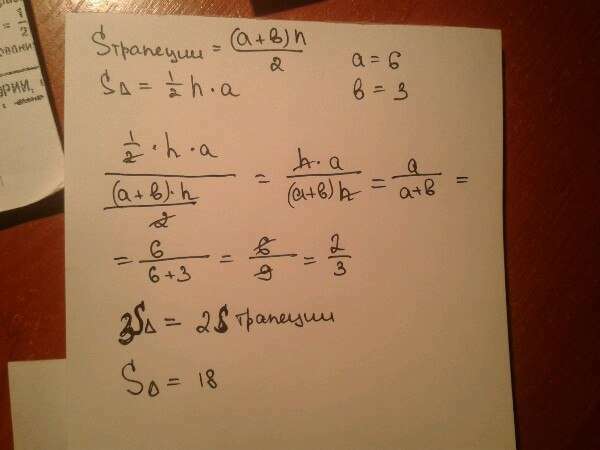 = 1/2
ории,
Sтрапеции = (a+b)h/2
a = 6
SΔ = 1/2 h·a
b = 3
(1/2·h·a)/((a+b)·h/2) = h·a/(a+b)h = a/a+b =
= 6/6+3 = 6/9 = 2/3
3SΔ = 2S трапеции
SΔ = 18